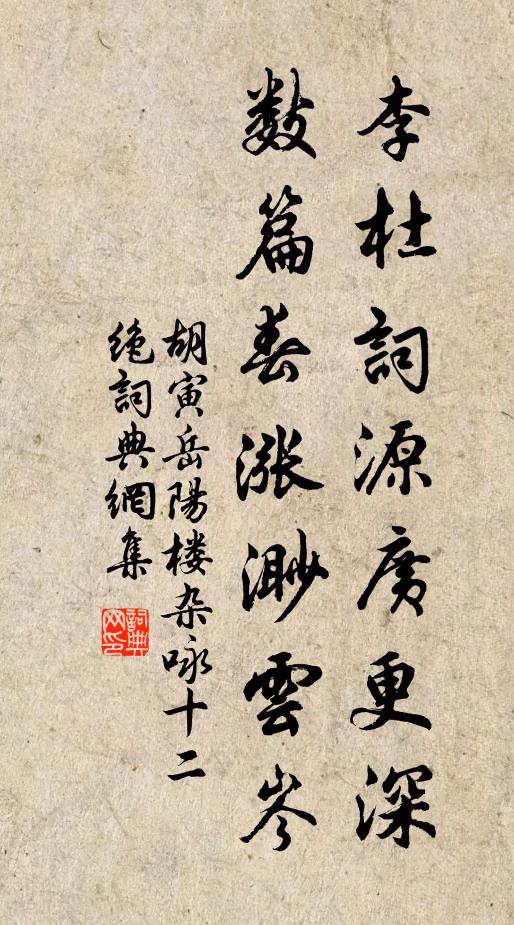 李杜詞源廣更深
数篇春漲渺雲岑
胡寅岳陽楼杂咏十二
绝詞典網集
詞典
网印